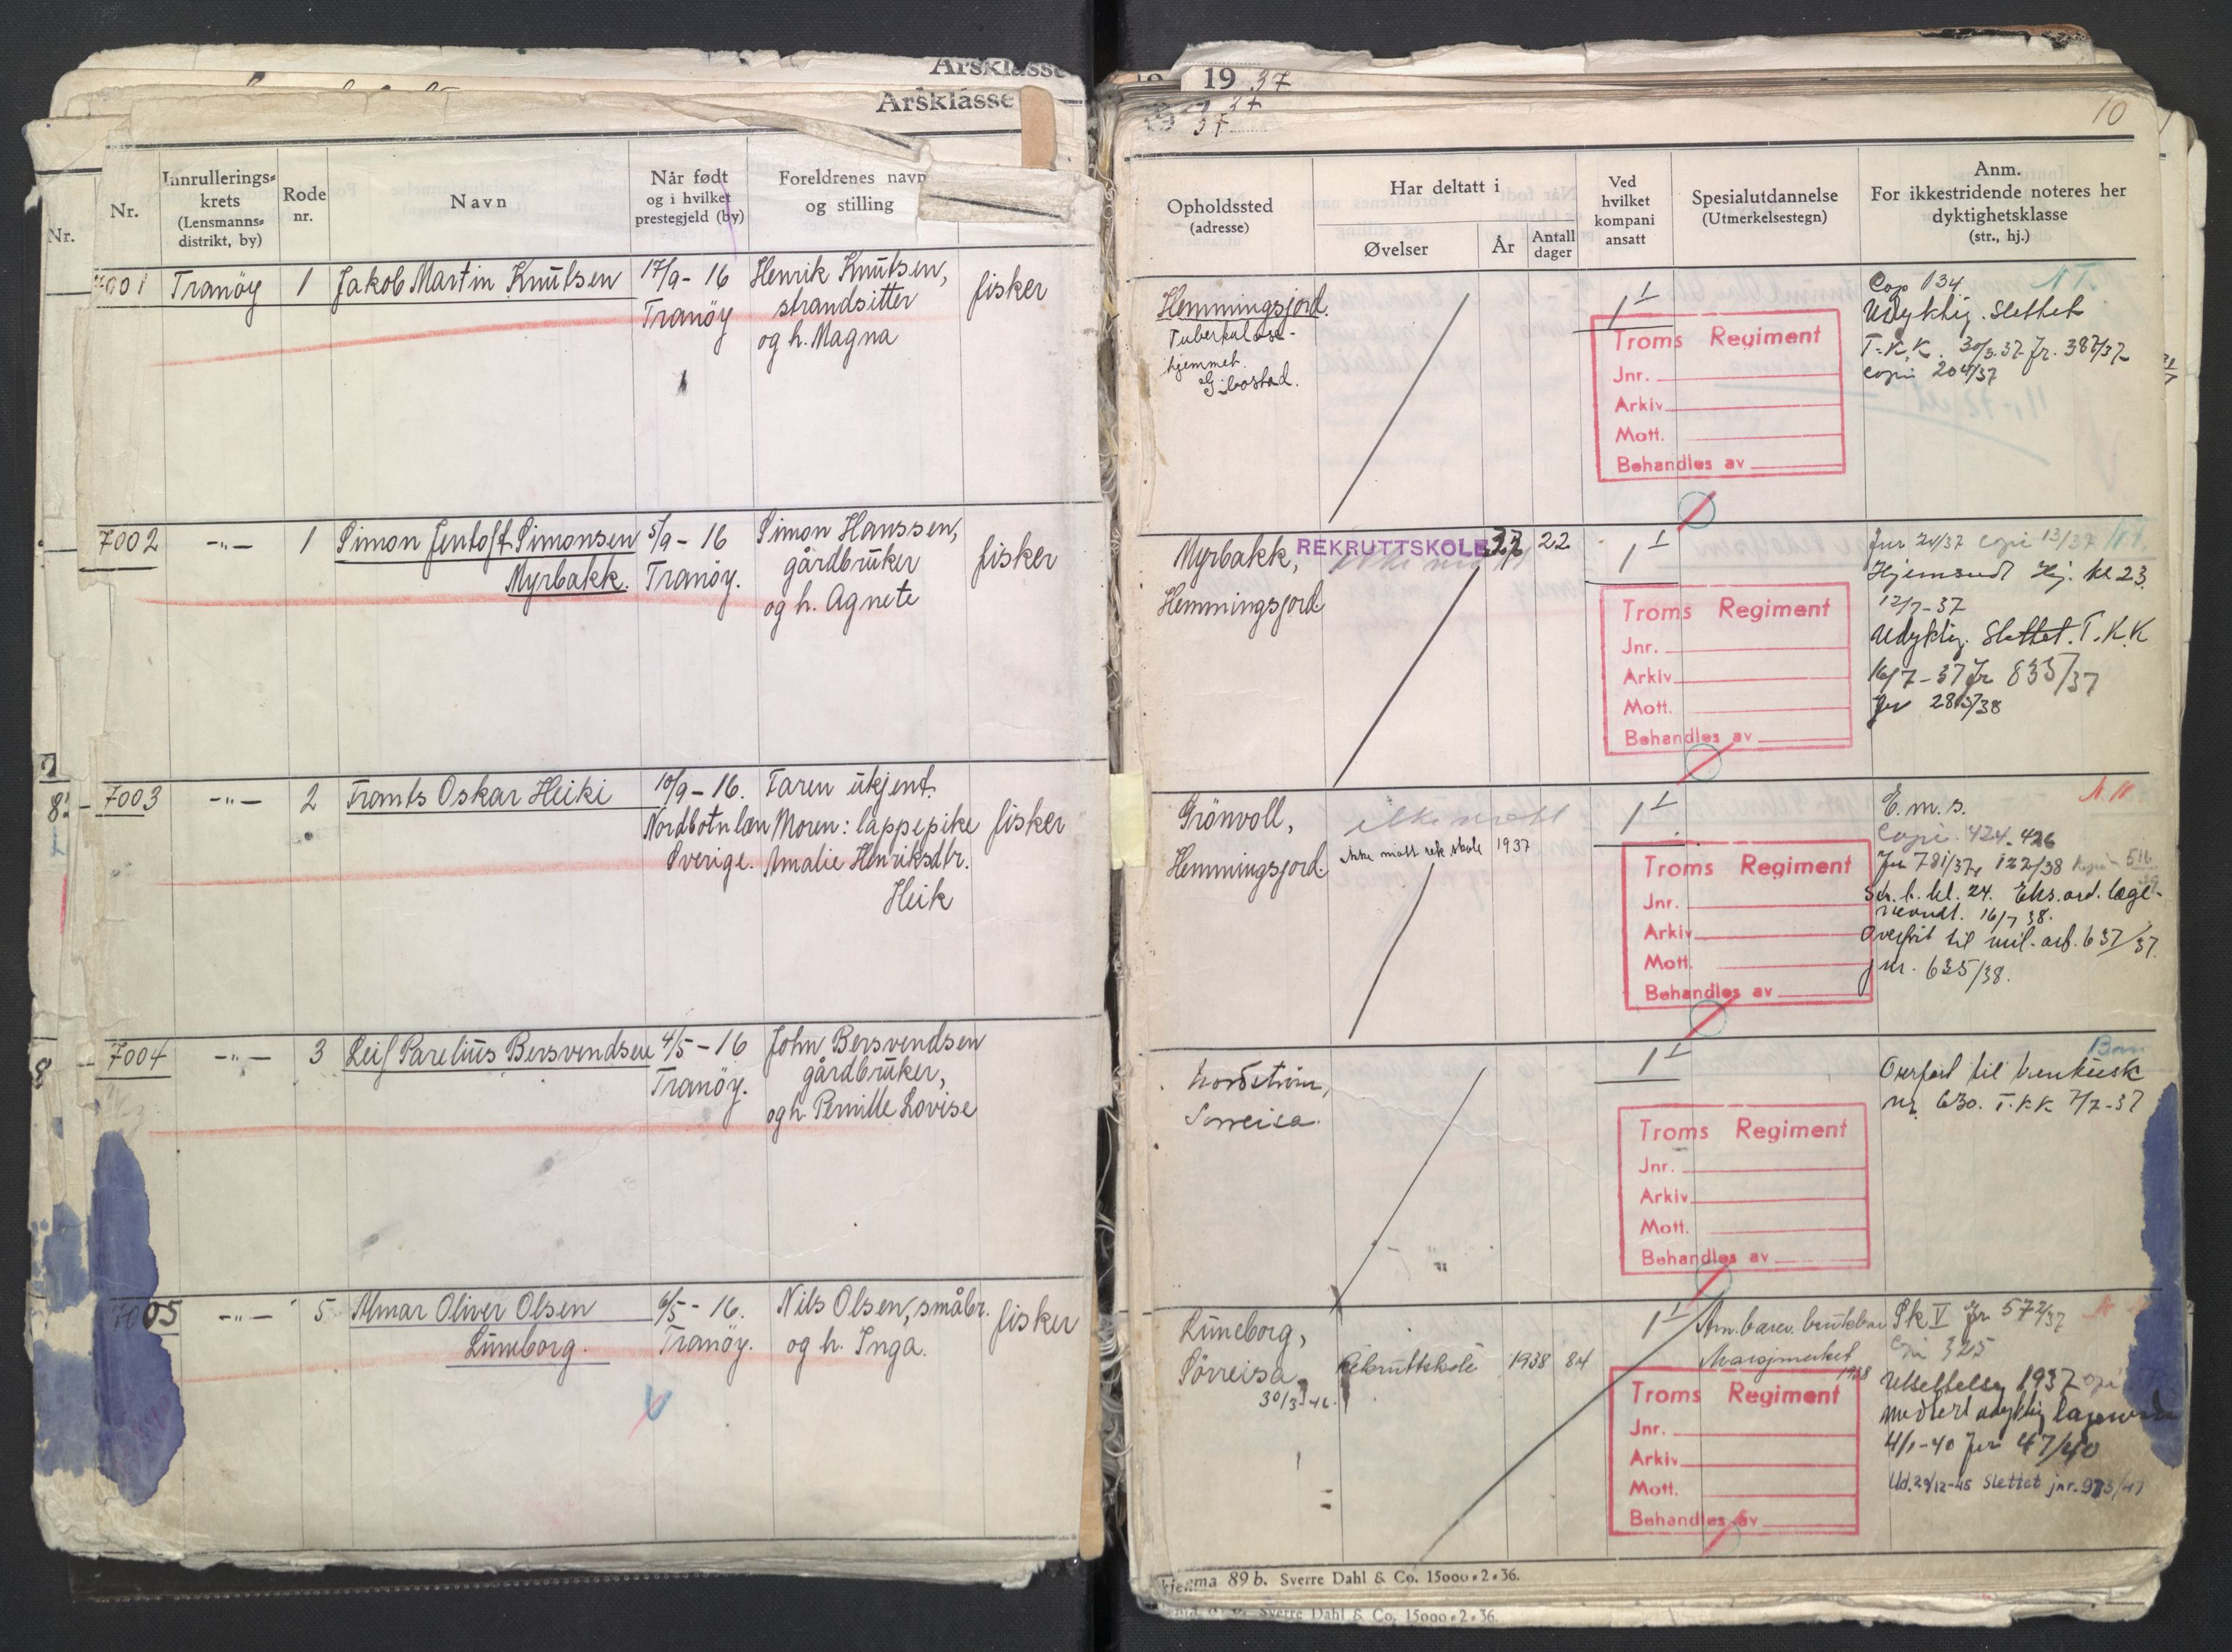 Årsklasse
Årsklasse 19 37
37
37
10
Nr.
Nr.
Innrullerings-
krets
(Lensmanns-
distrikt, by)
Rode
nr.
Navn
Når født
og i hvilket
prestegjeld (by)
Foreldrenes navn
og stilling
Opholdssted
(adresse)
Har deltatt i
Øvelser
År
Antall
dager
Ved
hvilket
kompani
ansatt
Spesialutdannelse
(Utmerkelsestegn)
Anm.
For ikkestridende noteres her
dyktighetsklasse
(str., hj.)
7001 Tranöy 1 Jakob Martin Knutsen
17/9 - 16
Tranöy
Henrik Knutsen,
strandsitter
og h. Magna
fisker
Hemmingsjord.
Tuberkulose-
hjemmet.
Gibostad.
1 I
Troms Regiment
Jnr.
Arkiv
Mott.
Behandles av
Cop 134
Udyktig. Slettet
T.K.K. 30/3.37. Jr. 387/37
copi 204/37
7002 -"- 1 Simon Jentoft Simonsen
Myrbakk.
5/9 - 16
Tranöy.
Simon Hanssen,
gårdbruker
og h. Agnete
fisker
Myrbakk,
Hemmingsjord
REKRUTTSKOLE 37 22
1 I
Troms Regiment
Jnr.
Arkiv
Mott.
Behandles av
Jnr 24/37 copi 13/37
Hjemsendt Hj. kl 23.
12/7-37
Udyktig. Slettet. T.K.K
16/7-37 Jr 835/37
Jnr 2813/38
7003 -"- 2 Frants Oskar Heiki
10/9 - 16.
Nordbotnlæn
Sverige.
Faren ukjent.
Moren: lappepike
Amalie Henriksdtr.
Heik
fisker
Grönvoll,
Hemmingsjord.
ikke møtt
ikke møtt rek.skole 1937
1 I
Troms Regiment
Jnr.
Arkiv
Mott.
Behandles av
E.m.s.
Copi 424. 426
Jnr 781/37, 122/38
Str. b. kl. 24. Eks.ord. læge-
nevnd. 16/7 38.
Overført til mil. arb. 637/37.
jnr. 635/38.
7004 -"- 3 Leif Parelius Bersvendsen
4/5 - 16
Tranöy.
John Bersvendsen
gårdbruker,
og h. Pernille Lovise
Nordström,
Sorreisa.
1 I
Troms Regiment
Jnr.
Arkiv
Mott.
Behandles av
Overført til
nr. 630. T.K.K 7/7-37
7005 -"- 5 Almar Oliver Olsen
Luneborg.
6/5 - 16.
Tranöy.
Nils Olsen, småbr.
og h. Inga.
fisker
Luneborg,
Sörreisa.
30/3-46.
Rekruttskole 1938 84
1 I
Marsjmerket
1938
Troms Regiment
Jnr.
Arkiv
Mott.
Behandles av
Sk V Jr 572/37
Copi 325
Utsettelse 1937
4/1-40 Jnr 47/40
Ud. 29/12-45 Slettet jnr. 973/47
ma 89 b. Sverre Dahl & Co. 15000-2-36.
Sverre Dahl & Co. 15000-2-36.